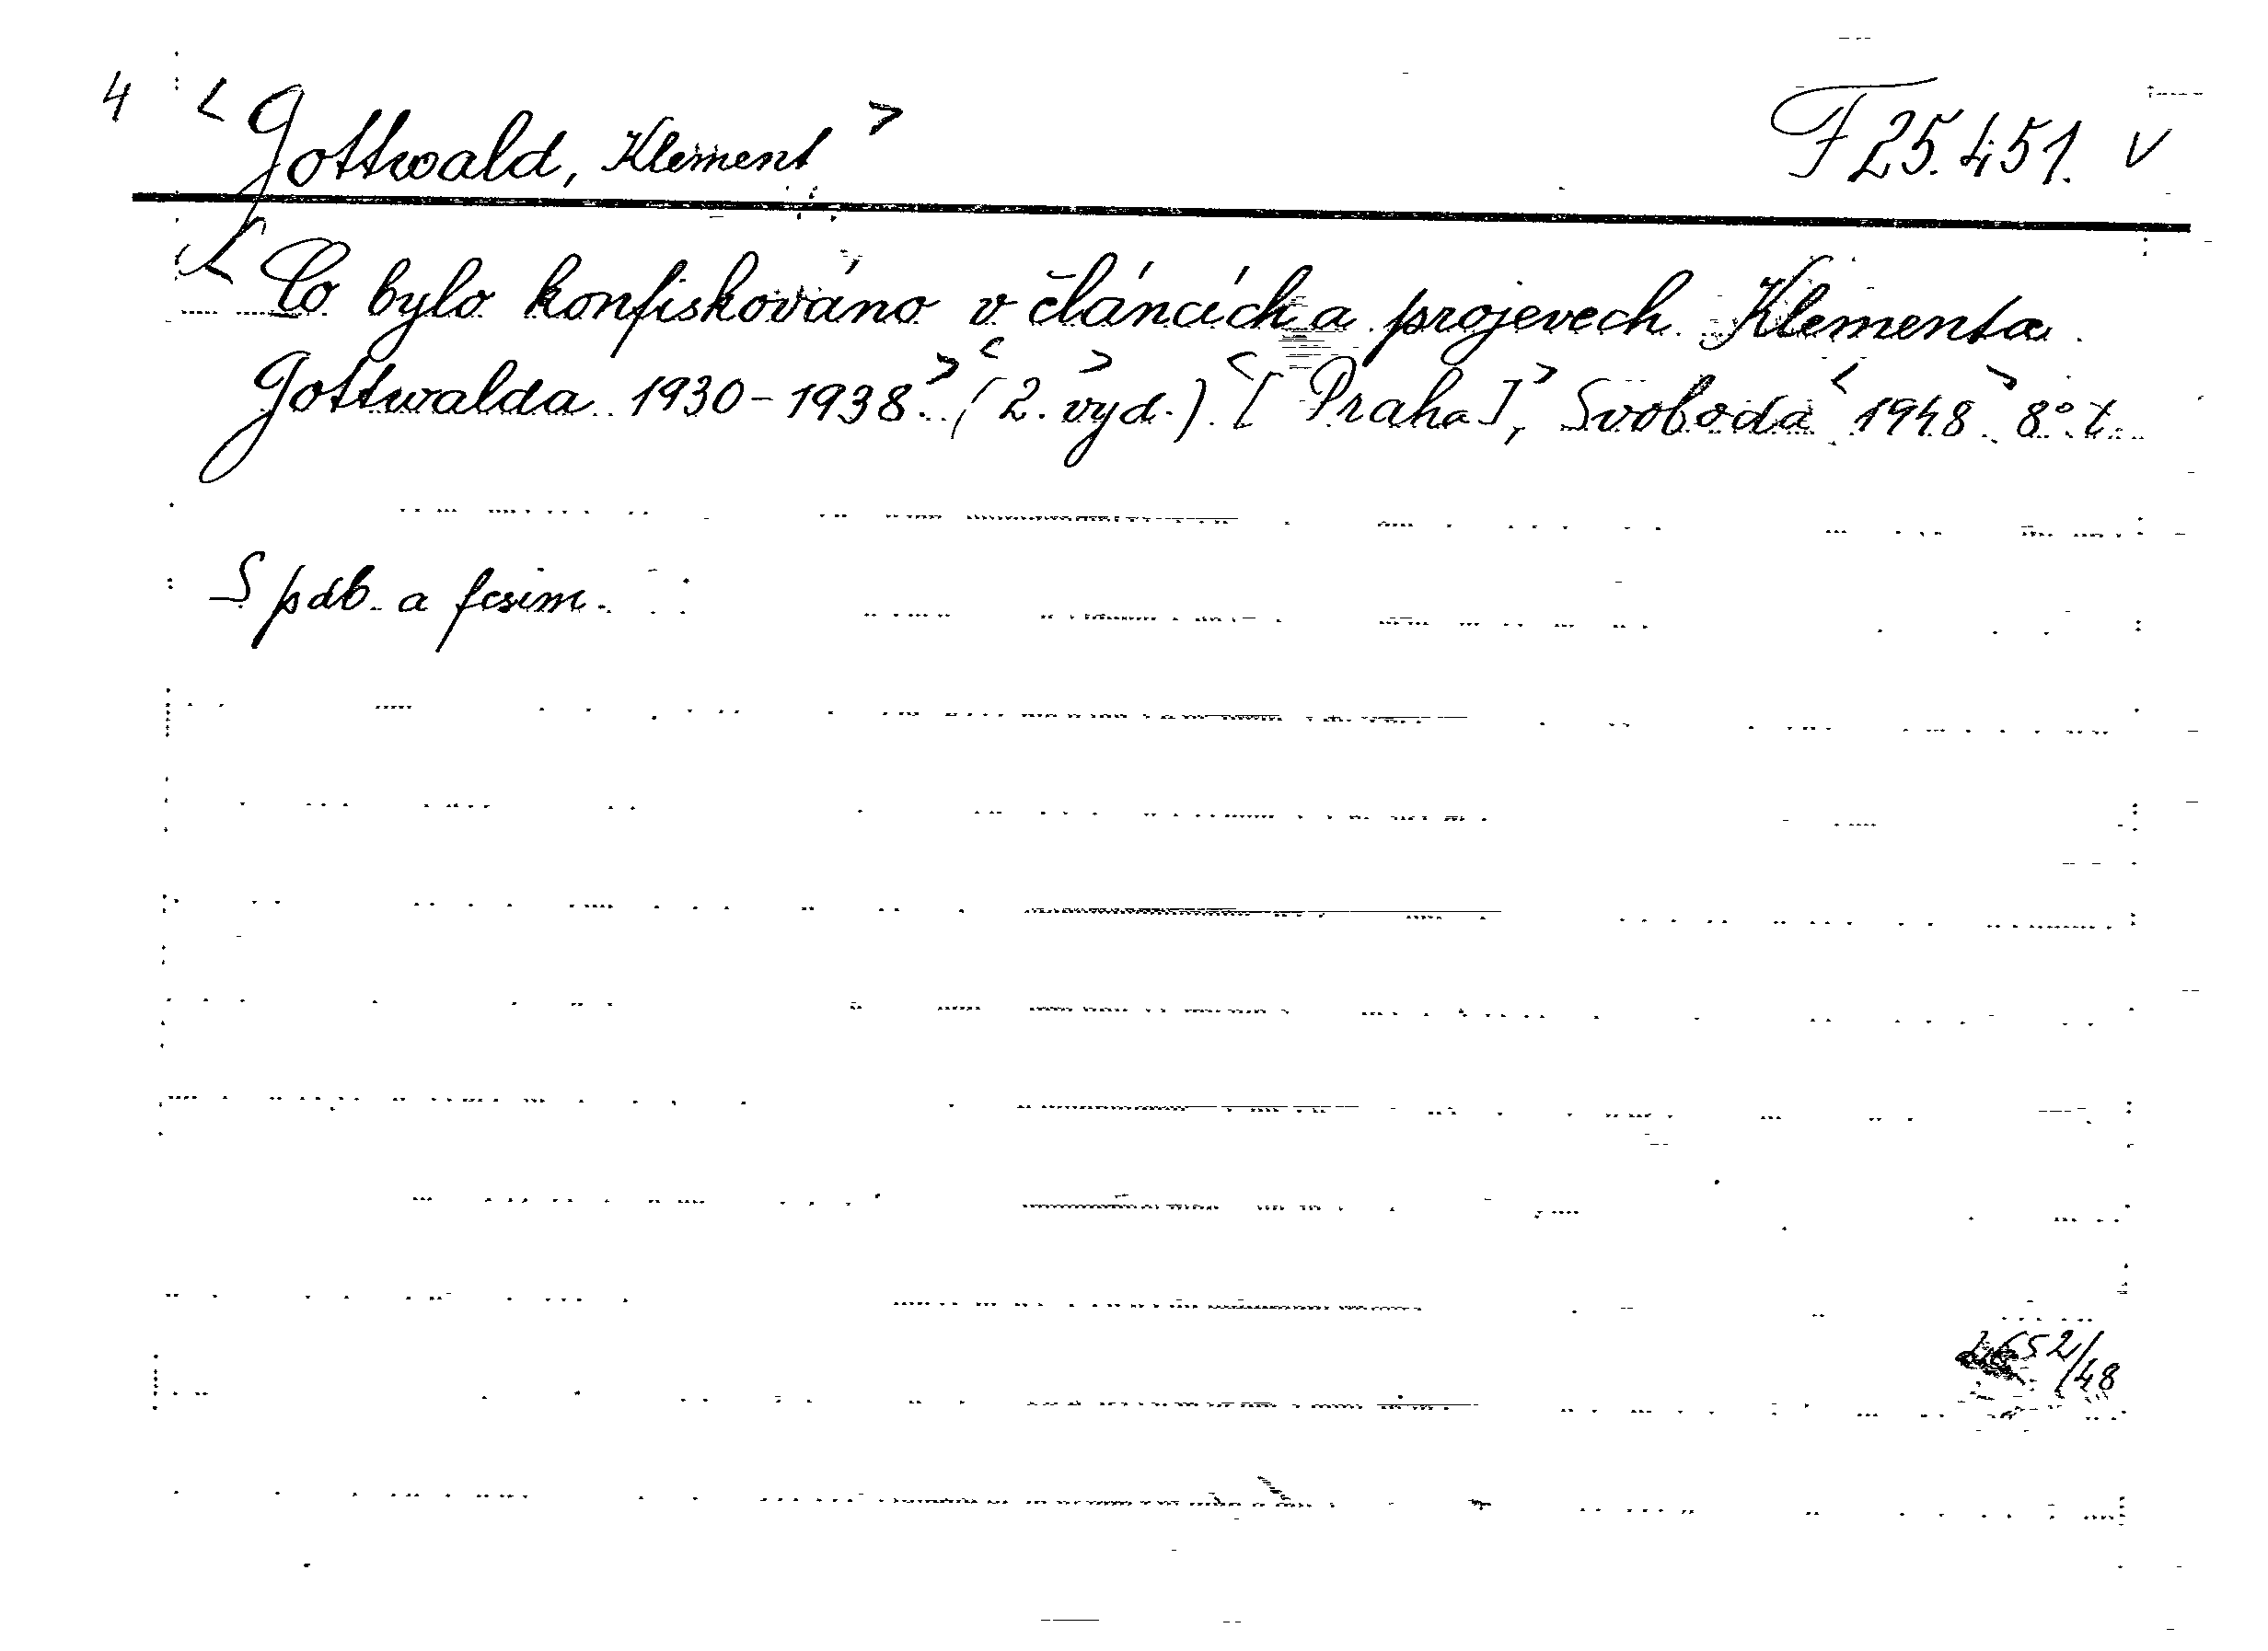 4 < Gottwald, Klement > F 25.451. v
< Co bylo konfiskováno v článcích a projevech Klementa
Gottwalda 1930-1938.> <(2. vyd.)> <[Praha],> Svoboda <1948>. 8° t.
S pdb. a fcsim.
652/48